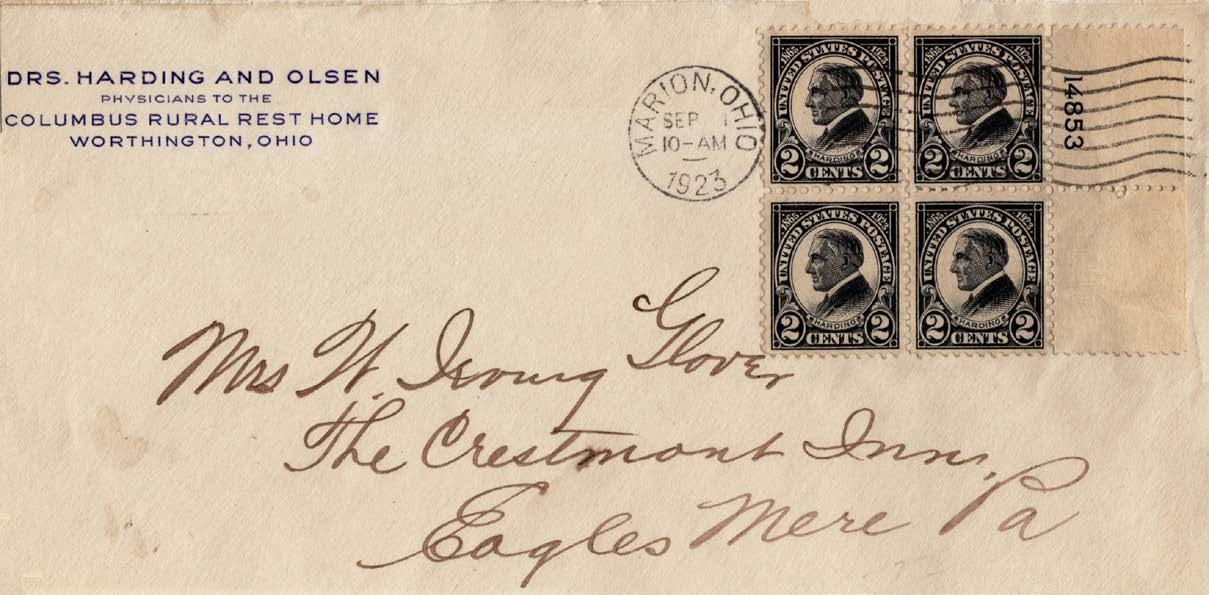 DRS. HARDING AND OLSEN
PHYSICIANS TO THE
COLUMBUS RURAL REST HOME
WORTHINGTON, OHIO
MARION, OHIO
SEP 1
10-AM
1923
1865 UNITED STATES POSTAGE 1923
HARDING
2 CENTS 2
1865 UNITED STATES POSTAGE 1923
HARDING
2 CENTS 2
14853
1865 UNITED STATES POSTAGE 1923
HARDING
2 CENTS 2
1865 UNITED STATES POSTAGE 1923
HARDING
2 CENTS 2
Mrs W. Irving Glover
The Crestmont Inn,
Eagles Mere Pa